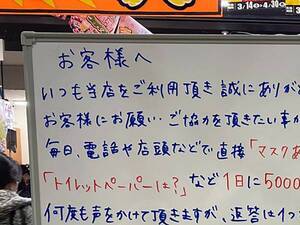 3/14㊍~4/30㊋
お客様へ
いつも当店をご利用頂き誠にありが
お客様にお願い・ご協力を頂きたい事が
毎日、電話や店頭などで直接「マスクあ
「トイレットペーパーは？」など1日に5000
何度も声をかけて頂きますが、返答は1つ